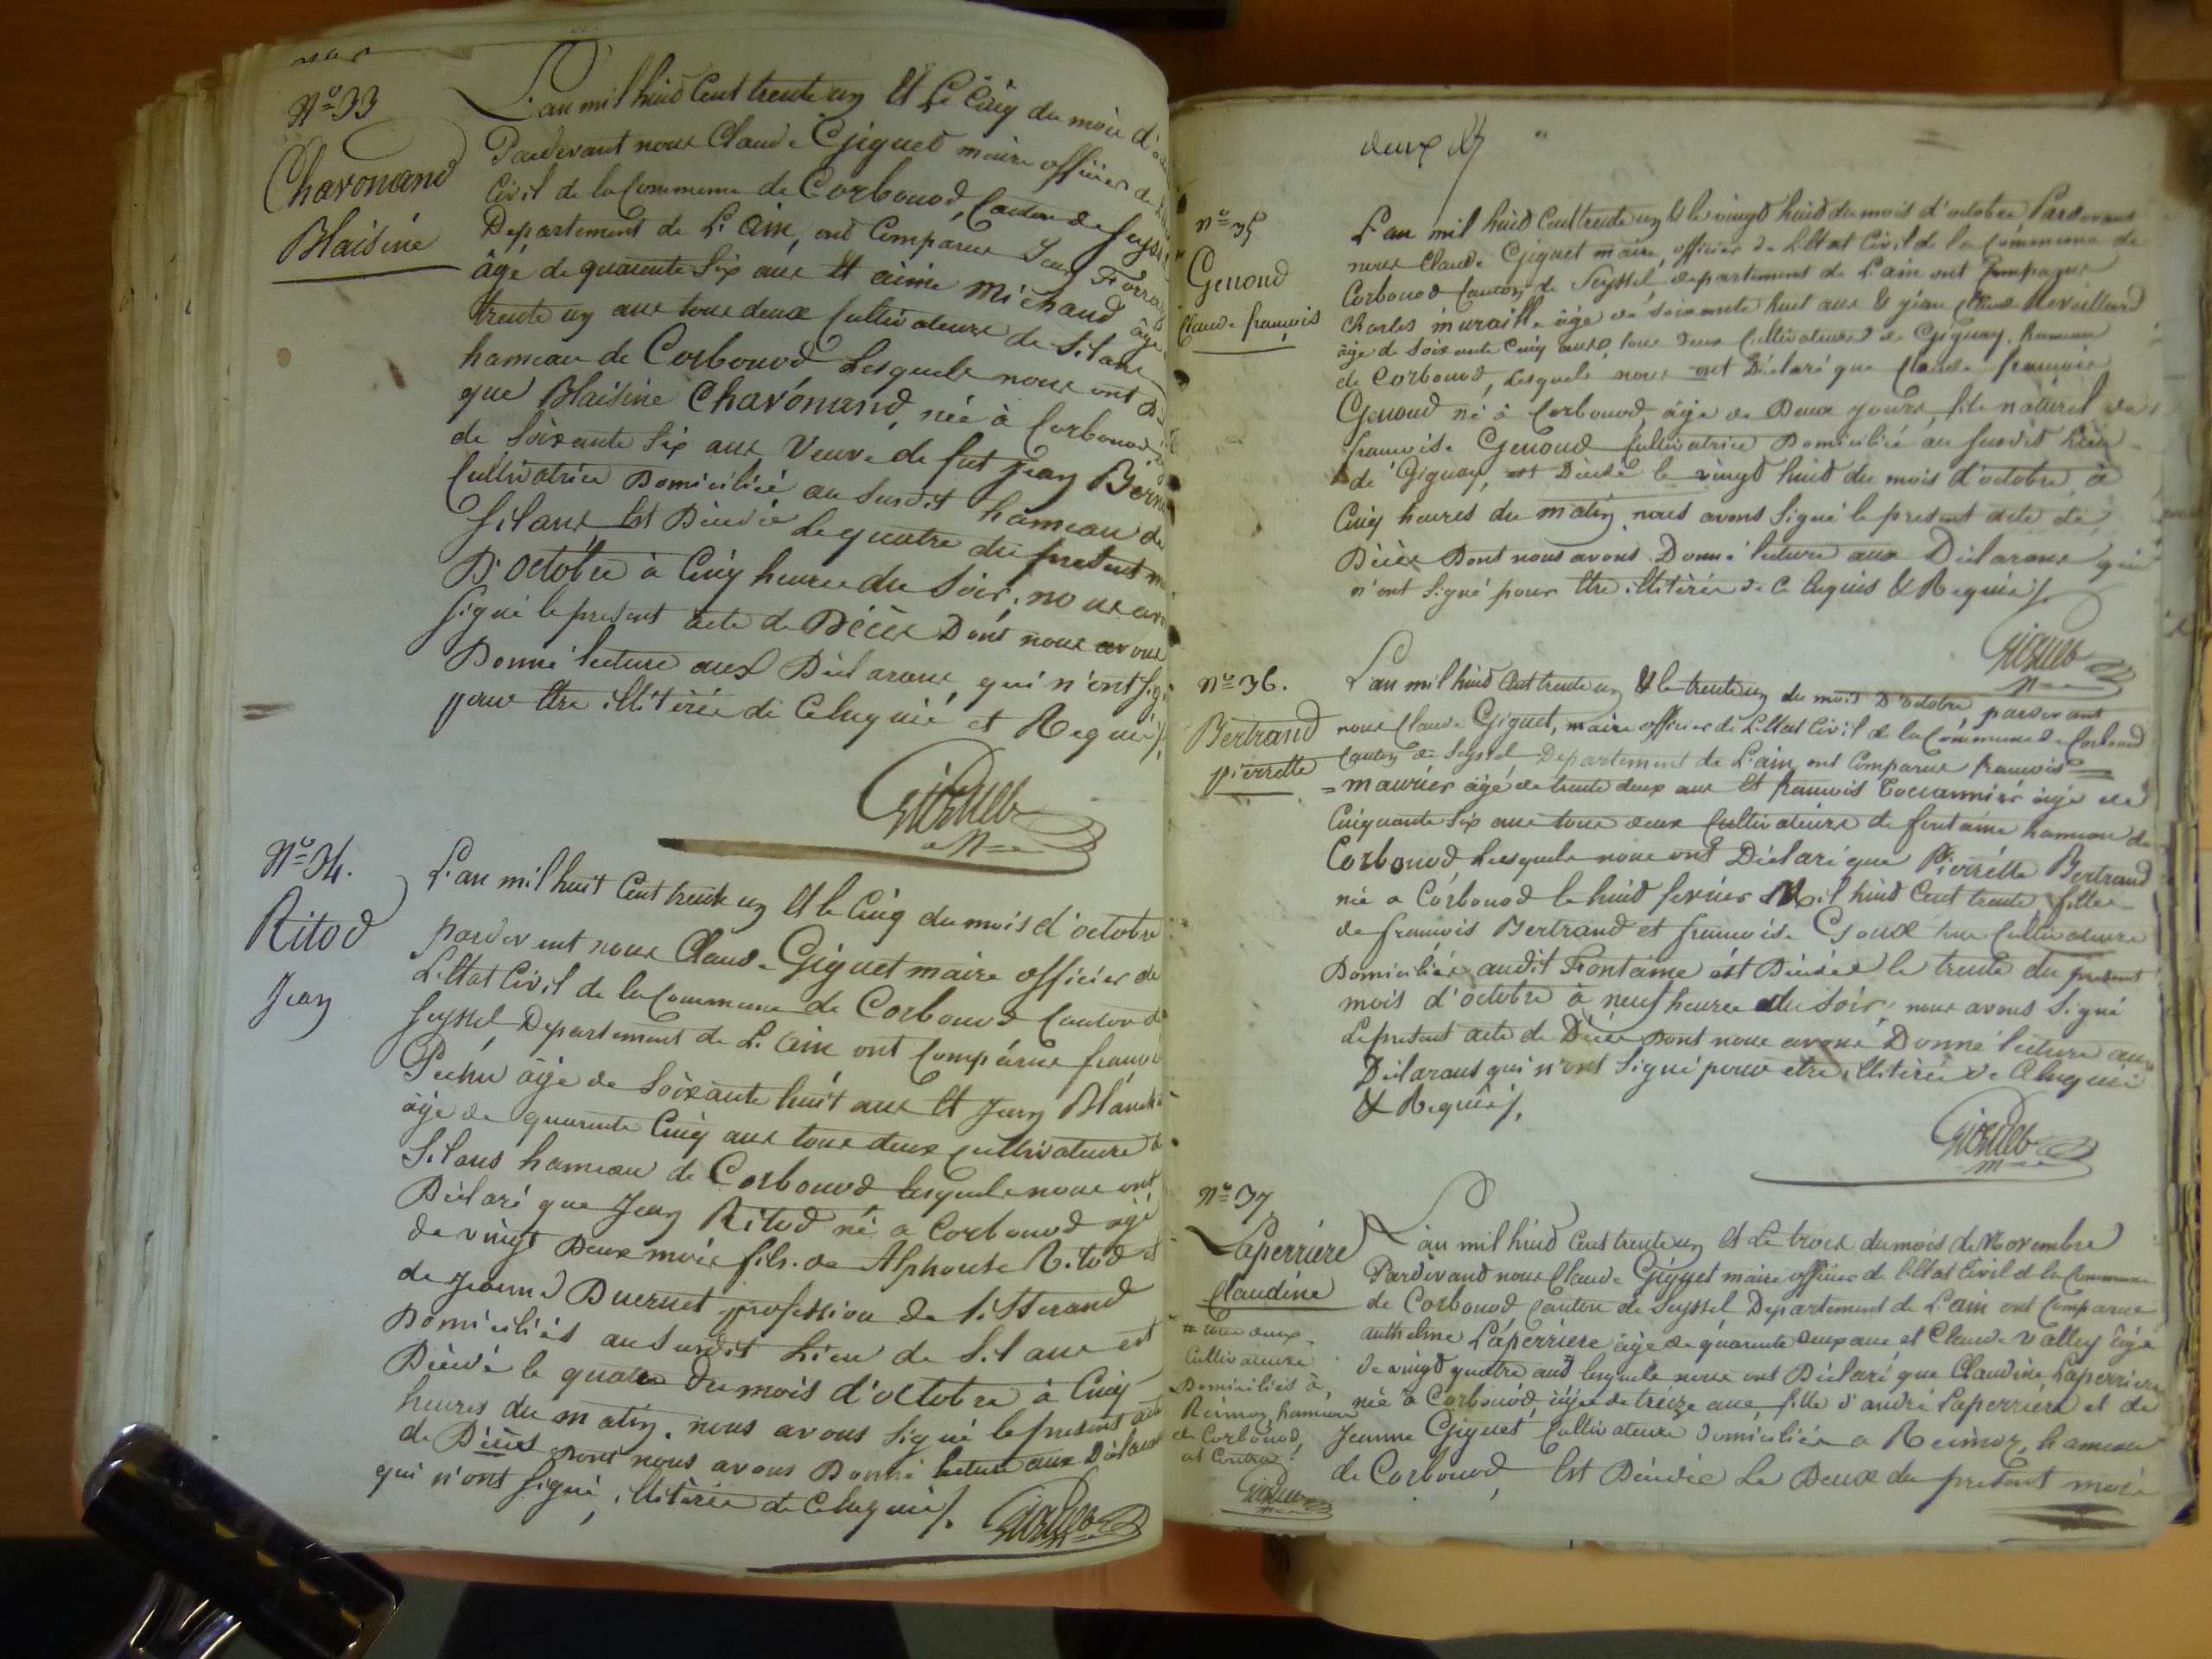 N° 33
Chavonand
Blaisine
L'an mil huid Cent trente un Et Le Cinq du mois
Pardevant nous Claude Giguet maire officier de
Civil de la Commune de Corbonod, Canton de Seyss
Departement de L'ain, ont Comparus Jean
âgé de quarante Six ans Et aimé Michaud âgé
trente un ans tous deux Cultivateurs de Silans
hameau de Corbonod Lesquels nous ont
que Blaisine Chavonand, née à Corbonod
de Soixante Six ans Veuve de fut Jean
Cultivatrice Domiciliée au Susdit hameau de
Silans, Est Décédée le quatre du present
D'Octobre à Cinq heures du Soir, nous
Signé le present acte de Décès Dont nous avons
Donné lecture aux Déclarans qui n'ont
pour Etre illitérés de Ce Enquis et Requis /.
Giguet
m
N° 34.
Ritod
Jean
L'an mil huit Cent trente un Et le Cinq du mois d'octobre
pardevent nous Claude Giguet maire officier de
L'Etat Civil de la Commune de Corbonod Canton de
Seyssel, Departement de L'ain ont Comparus
âgé de Soixante huit ans Et Jean
âgé de quarante Cinq ans tous deux Cultivateurs
Silans hameau de Corbonod lesquels nous ont
Déclaré que Jean Ritod né a Corbonod agé
de vingt Deux mois fils de Alphonse Ritod et
de Jeanne Ducruet profession de tisserand
Domiciliés au Susdit Lieu de Silans est
Décédé le quatre Du mois d'octobre à Cinq
heures du matin, nous avons Signé le present
de Décès Dont nous avons Donné lecture aux
qui n'ont Signé, illitérés de Ce Enquis /.
Giguet
deux
N° 35
Genoud
Claude françois
L'an mil huid Cent trente un Et le vingt huid du mois d'octobre Pardevant
nous Claude Giguet maire, officier de L'Etat Civil de la Commune de
Corbonod Canton de Seyssel, departement de L'ain ont Comparus
Charles muraille âgé de Soixante huit ans & jean Claude
âgé de Soixante Cinq ans, tous deux Cultivateurs de Gignay, hameau
de Corbonod, Lesquels nous ont Déclaré que Claude françois
Genoud né à Corbonod, âgé de Deux jours, fils naturel de
françoise Genoud Cultivatrice Domiciliée au Susdit Lieu
de Gignay, est Décédé le vingt huid du mois d'octobre à
Cinq heures du matin, nous avons Signé le present acte de
Décès Dont nous avons Donné lecture aux Déclarans qui
n'ont Signé pour Etre illitérés de Ce Enquis & Requis /.
Giguet
m
N° 36.
Bertrand
pierrette
L'an mil huid Cent trente un & le trente un du mois D'octobre pardevant
nous Claude Giguet, maire officier de L'Etat Civil de la Commune de Corbonod
Canton de Seyssel Departement de L'ain, ont Comparus françois
= maurier âgé de trente deux ans Et françois âgé de
Cinquante Six ans tous deux Cultivateurs de fontaine hameau de
Corbonod, Lesquels nous ont Déclaré que Pierrette Bertrand
née a Corbonod le huid fevrier Mil huid Cent trente fille
de françois Bertrand et françoise Goux tous Cultivateurs
Domiciliés audit Fontaine est Décédée le trente du present
mois d'octobre à neuf heures du Soir, nous avons Signé
Le present acte de Décès Dont nous avons Donné lecture aux
Déclarans qui n'ont Signé pour etre illitérés de Ce Enquis
& Requis /.
Giguet
m
N° 37
Laperriere
Claudine
L'an mil huid Cent trente un Et Le trois du mois de Novembre
Pardevand nous Claude Giguet maire officier de l'Etat Civil de la Commune
de Corbonod, Canton de Seyssel Departement de L'ain ont Comparus
anthelme Laperriere âgé de quarante deux ans et Claude Valley âgé
de vingt quatre ans lesquels nous ont Déclaré que Claudine Laperriere
née a Corbonod âgée de treize ans, fille d'andré Laperriere et de
Jeanne Giguet Cultivateurs domiciliés a Reimoz, hameau
de Corbonod, Est Décédée Le Deux du present mois
tous deux
Cultivateurs
Domiciliés à
Reimoz, hameau
de Corbonod,
Giguet
m